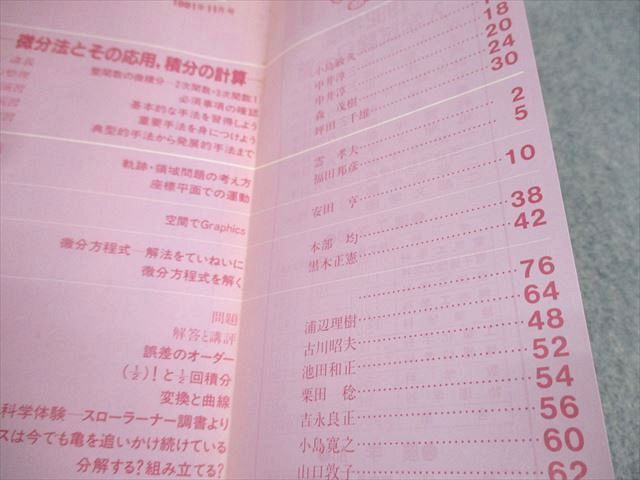 1991年11月号
微分法とその応用,積分の計算
講義 整関数の微積分―2次関数・3次関数! 小島敏久 18
必須事項の確認 中井淳三 20
演習 基本的な手法を習得しよう 中井淳三 24
演習 重要手法を身につけよう 森 茂樹 30
典型的手法から発展的手法まで 坪田三千雄
軌跡・領域問題の考え方 雲 孝夫 2
座標平面での運動 福田邦彦 5
空間でGraphics 安田 亨 10
微分方程式―解法をていねいに 本部 均 38
微分方程式を解く 黒木正憲 42
問題 76
解答と講評 浦辺理樹 64
誤差のオーダー 古川昭夫 48
(1/2)!と1/2回積分 池田和正 52
変換と曲線 栗田 稔 54
科学体験―スローラーナー調書より 吉永良正 56
スは今でも亀を追いかけ続けている 小島寛之 60
分解する?組み立てる? 山口敦子 62